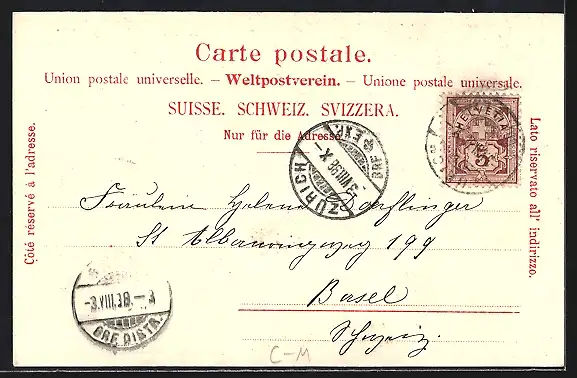 Carte postale.
Union postale universelle. – Weltpostverein. – Unione postale universale.
SUISSE. SCHWEIZ. SVIZZERA.
Nur für die Adresse.
Côté réservé à l'adresse.
Lato riservato all' indirizzo.
HELVETIA
5
ZÜRICH
BRF. EXP.
-3.VIII.98.X-
Fräulein Helene Dorflinger
St Albanringweg 199
Basel
Schweiz.
-3.VIII.98.-3
BRF. DISTR.
C-M